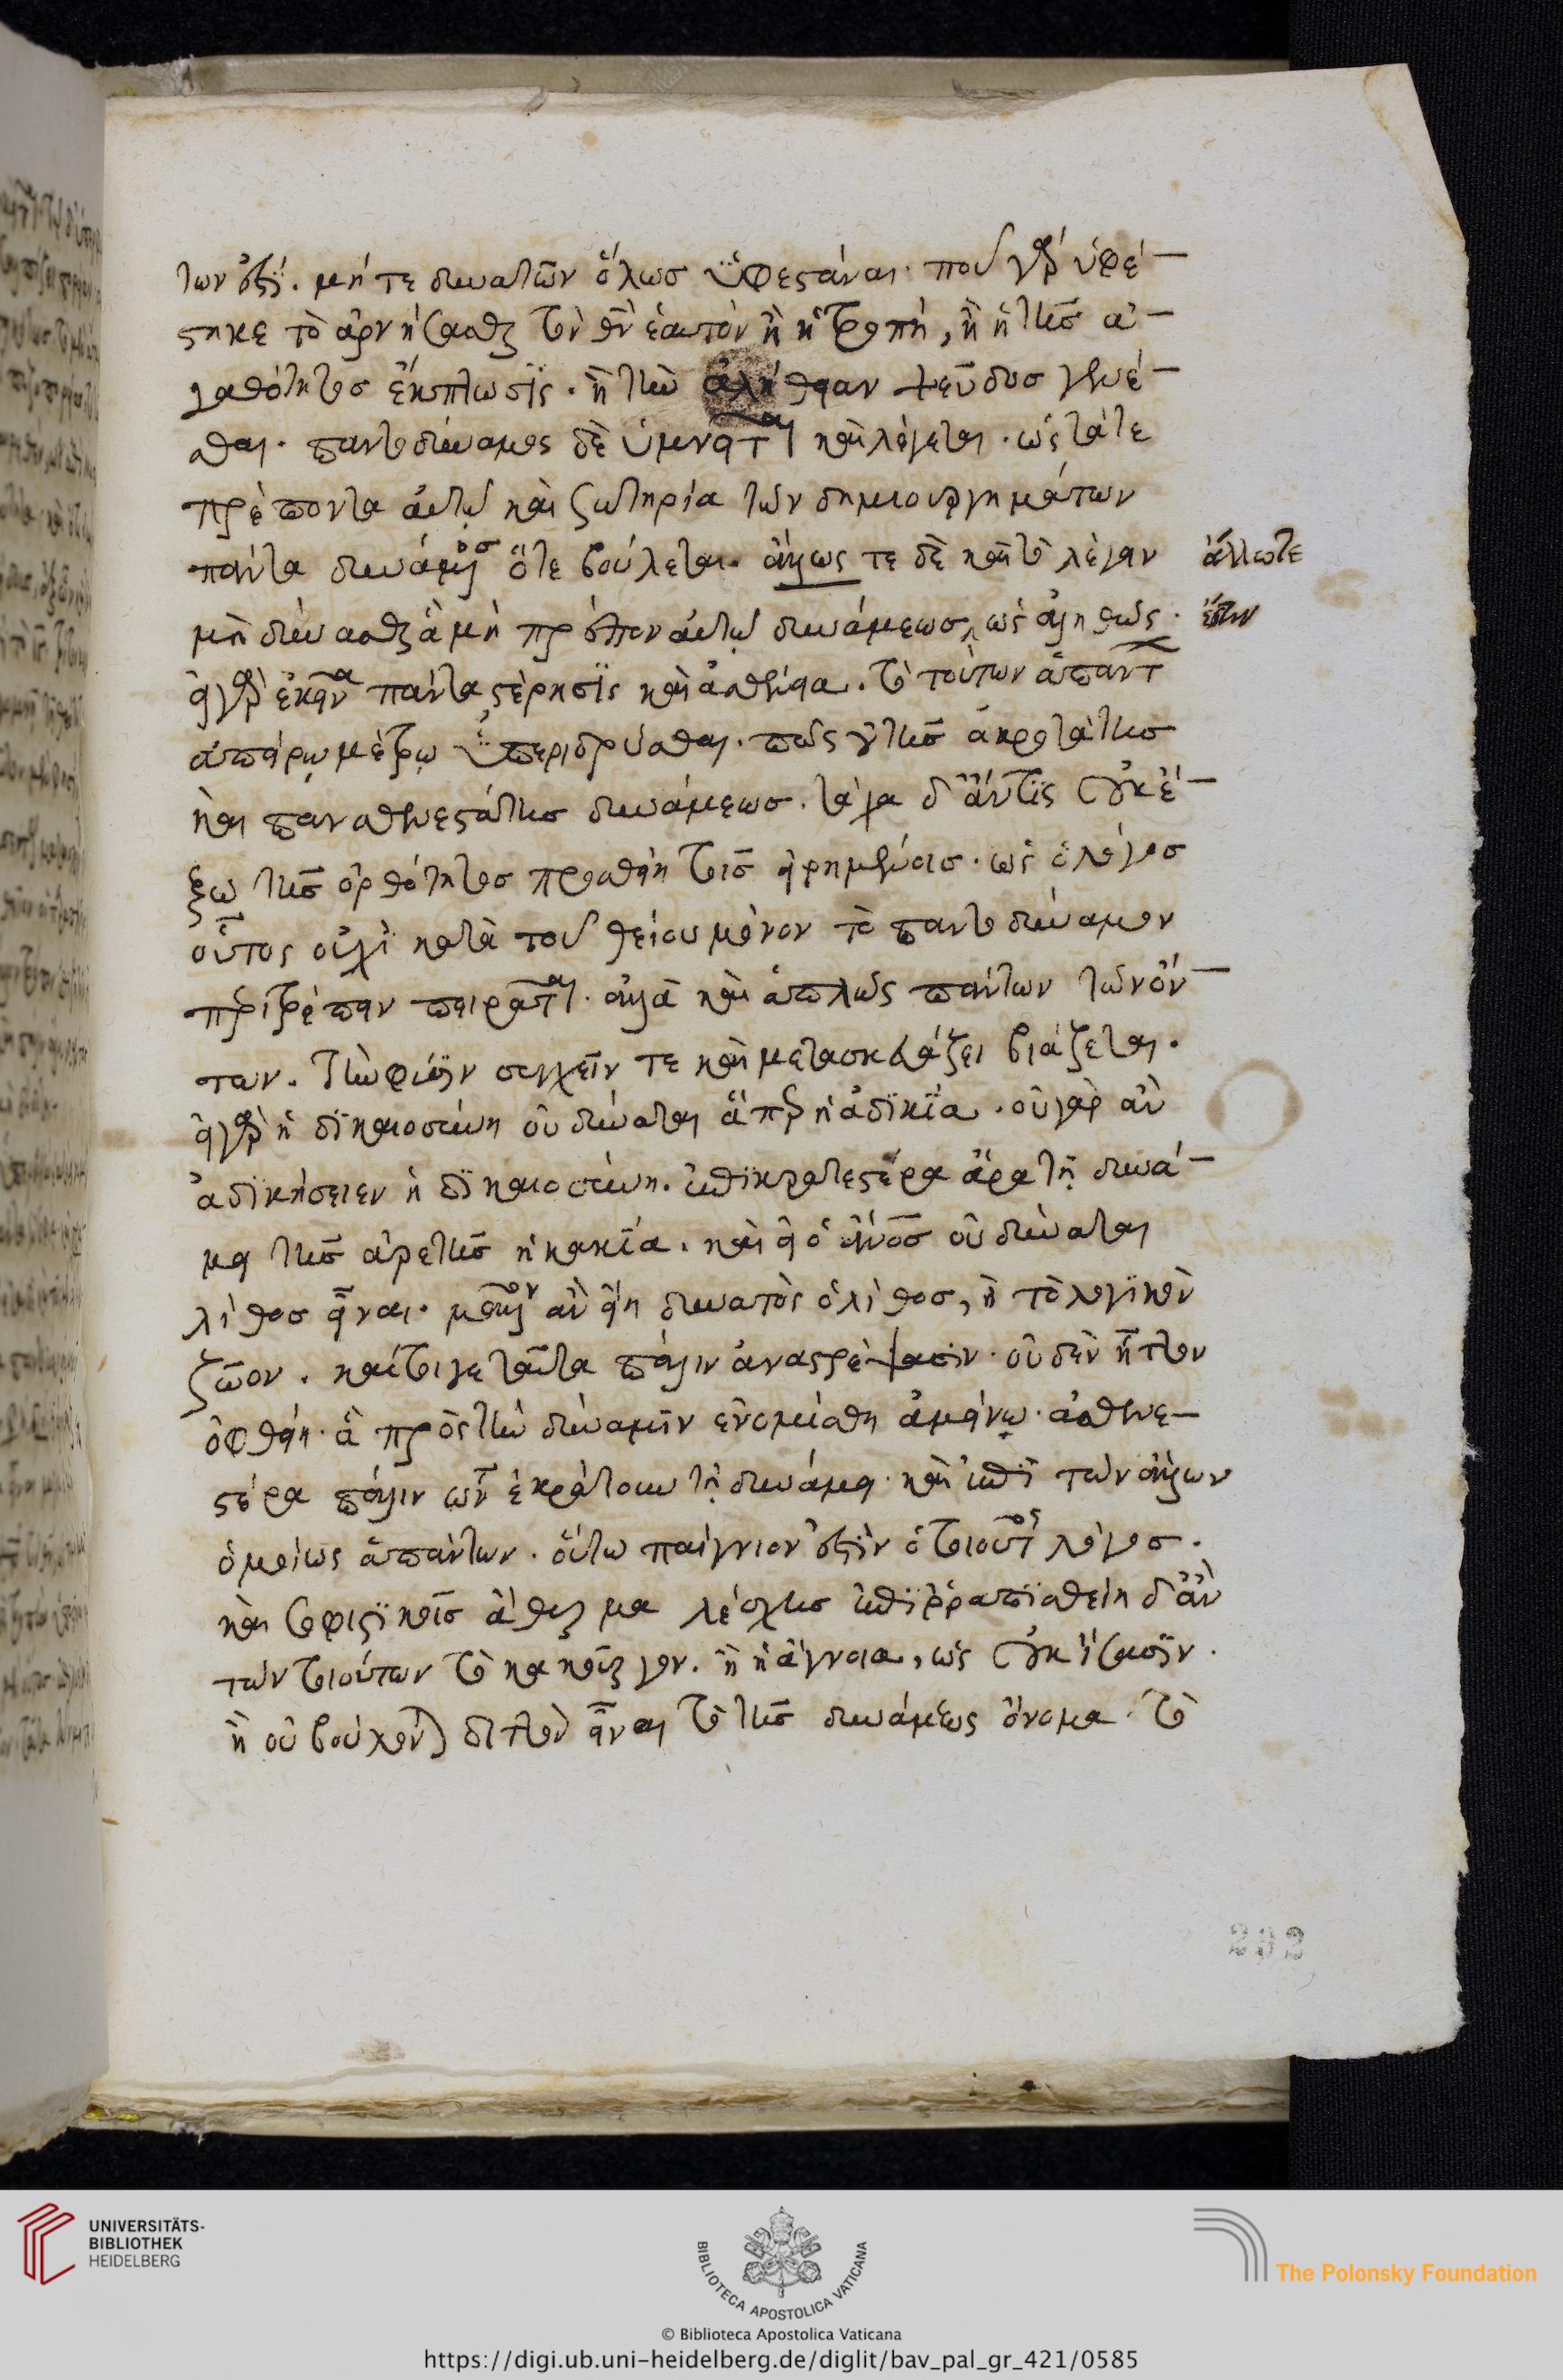 των ἐστί. μήτε δυνατῶν ὅλως ὑφεστάναι. ποῦ γὰρ ὑφέ-
στηκε τὸ ἀρνήσασθαι τὸν θν ἑαυτὸν ἢ ἡ τροπή, ἢ ἡ τῆς ἀ-
γαθότητος ἔκπτωσις. ἢ τὴν ἀλήθειαν ψεῦδος γενέ-
σθαι. παντοδύναμος δὲ ὑμνεῖται καὶ λέγεται. ὡς τά τε
πρέποντα αὐτῷ καὶ σωτηρία τῶν δημιουργημάτων
πάντα δυνάμενος ὅτε βούλεται. ἄλλως τε δὲ καὶ τὸ λέγειν
μὴ δύνασθαι ἃ μὴ πρέπον αὐτῷ δυνάμεως, ὡς ἀληθῶς.
εἰ γὰρ ἐκεῖνα πάντα στέρησις καὶ ἀσθένεια. τὸ τούτων ἁπάντων
ἀπείρῳ μέτρῳ ὑπεριδρύσθαι. πῶς οὐ τῆς ἀκροτάτης
καὶ πανσθενεστάτης δυνάμεως. τάχα δ' ἄν τις οὐκ ἔ-
ξω τῆς ὀρθότητος προσθείη τοῖς εἰρημένοις. ὡς ὁ λόγος
οὗτος οὐχὶ κατὰ τοῦ θείου μόνον τὸ παντοδύναμον
περιτρέπειν πειρᾶται. ἀλλὰ καὶ ἁπλῶς πάντων τῶν ὄν-
των. τὴν φύσιν συγχεῖν τε καὶ μετασκευάζειν βιάζεται.
εἰ γὰρ ἡ δικαιοσύνη οὐ δύναται ἅπερ ἡ ἀδικία. οὐ γὰρ ἂν
ἀδικήσειεν ἡ δικαιοσύνη. ἐπικρατεστέρα ἄρα τῇ δυνά-
μει τῆς ἀρετῆς ἡ κακία. καὶ εἰ ὁ ἄνος οὐ δύναται
λίθος εἶναι. μᾶλλον ἂν εἴη δυνατὸς ὁ λίθος, ἢ τὸ λογικὸν
ζῶον. καίτοι γε ταῦτα πάλιν ἀναστρέψασιν. οὐδὲν ἧττον
ὀφθείη. ἃ πρὸς τὴν δύναμιν ἐνομίσθη ἀμείνω. ἀσθενε-
στέρα πάλιν ὧν ἐκράτουν τῇ δυνάμει. καὶ ἐπὶ τῶν ἄλλων
ὁμοίως ἁπάντων. οὕτω παίγνιον ἐστὶν ὁ τοιοῦτος λόγος.
καὶ σοφιστικῆς ἄθυρμα λέσχης ἐπιρραπισθείη δ' ἂν
τῶν τοιούτων τὸ κακοῦργον. ἢ ἡ ἄγνοια, ὡς οὐκ ἴσασιν.
ἢ οὐ βούλονται διττὸν εἶναι τὸ τῆς δυνάμεως ὄνομα. τὸ
ἄλλοτε
202
UNIVERSITÄTS-
BIBLIOTHEK
HEIDELBERG
BIBLIOTECA APOSTOLICA VATICANA
The Polonsky Foundation
© Biblioteca Apostolica Vaticana
https://digi.ub.uni-heidelberg.de/diglit/bav_pal_gr_421/0585